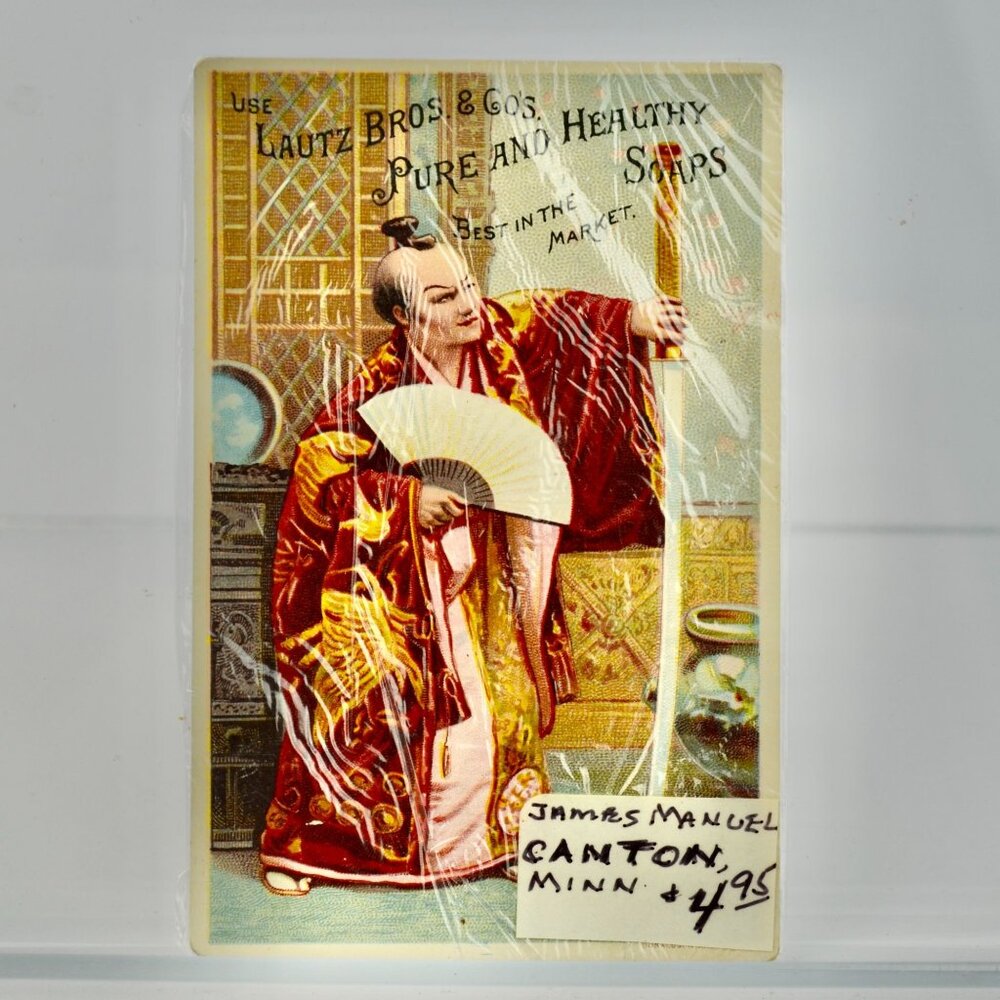 USE
LAUTZ BROS. & CO'S.
PURE AND HEALTHY
SOAPS
BEST IN THE
MARKET.
JAMES MANUEL
CANTON,
MINN. $4.95